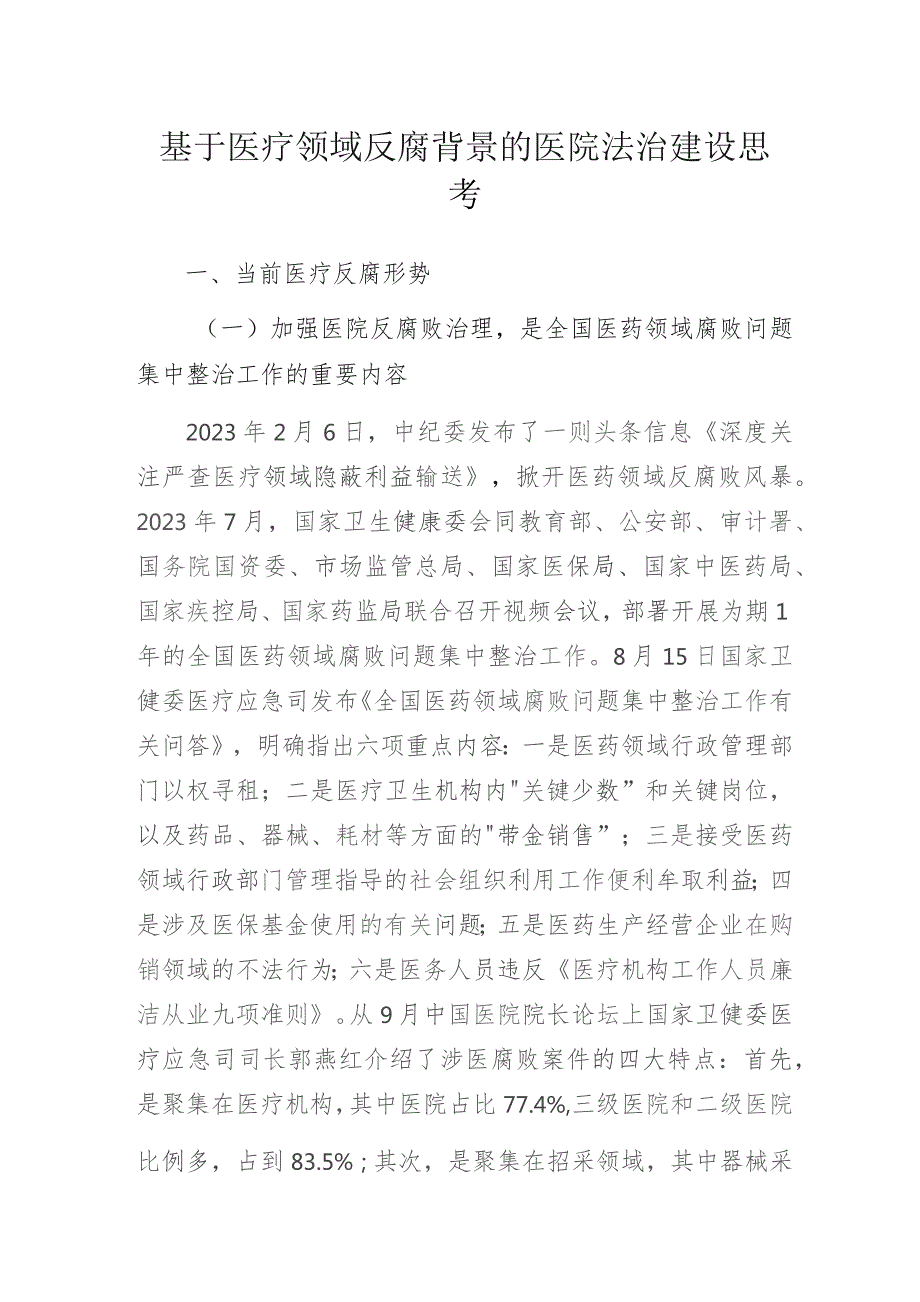 基于医疗领域反腐背景的医院法治建设思
考
一、当前医疗反腐形势
（一）加强医院反腐败治理，是全国医药领域腐败问题
集中整治工作的重要内容
2023 年 2 月 6 日，中纪委发布了一则头条信息《深度关
注严查医疗领域隐蔽利益输送》，掀开医药领域反腐败风暴。
2023 年 7 月，国家卫生健康委会同教育部、公安部、审计署、
国务院国资委、市场监管总局、国家医保局、国家中医药局、
国家疾控局、国家药监局联合召开视频会议，部署开展为期 1
年的全国医药领域腐败问题集中整治工作。8 月 15 日国家卫
健委医疗应急司发布《全国医药领域腐败问题集中整治工作有
关问答》，明确指出六项重点内容：一是医药领域行政管理部
门以权寻租；二是医疗卫生机构内"关键少数”和关键岗位，
以及药品、器械、耗材等方面的"带金销售”；三是接受医药
领域行政部门管理指导的社会组织利用工作便利牟取利益；四
是涉及医保基金使用的有关问题；五是医药生产经营企业在购
销领域的不法行为；六是医务人员违反《医疗机构工作人员廉
洁从业九项准则》。从 9 月中国医院院长论坛上国家卫健委医
疗应急司司长郭燕红介绍了涉医腐败案件的四大特点：首先，
是聚集在医疗机构，其中医院占比 77.4%,三级医院和二级医院
比例多，占到 83.5%；其次，是聚集在招采领域，其中器械采